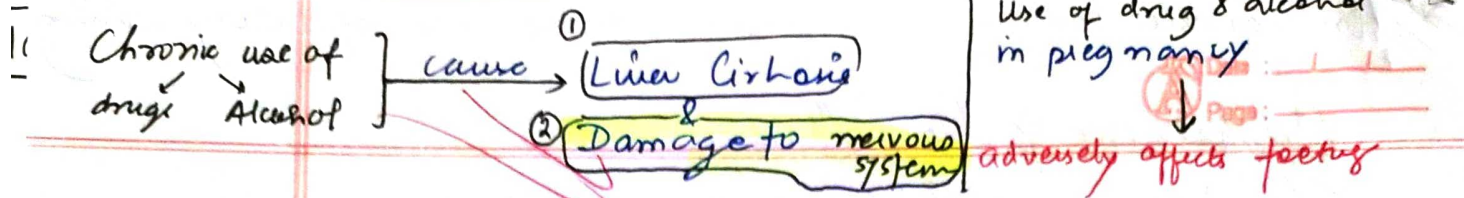 Chronic use of
drugs Alcohol
cause
① Liver Cirhosis
&
② Damage to nervous
system
Use of drug & alcohol
in pregnancy
Date :
Page :
adversely affects foetus